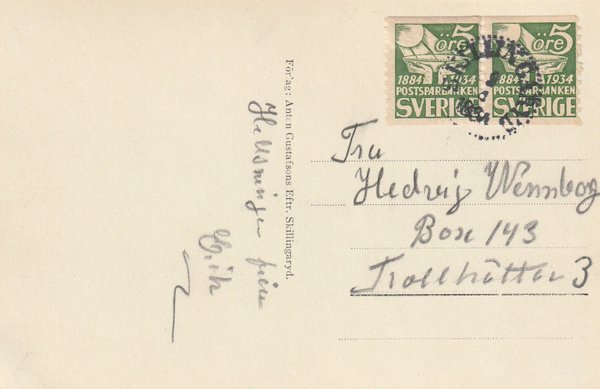 5 öre
öre 5
1884 1934
1884 1934
POSTSPARBANKEN
POSTSPARBANKEN
SVERIGE
SVERIGE
Förlag: Anton Gustafsons Eftr. Skillingaryd.
Hälsningar från
Erik
Fru
Hedvig Wennberg
Box 143
Trollhättan 3